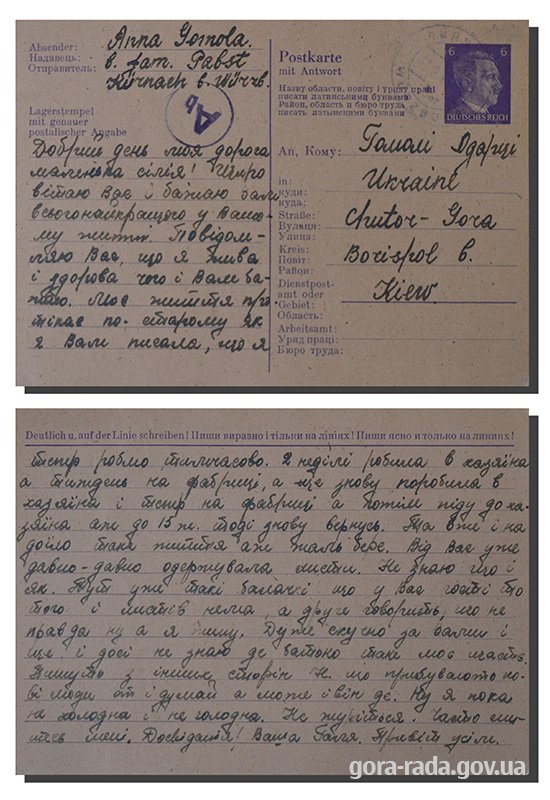 Absender:
Надавець:
Отправитель:
Anna Gomola.
b. fam. Pabst
Kürnach b. Würzb.
Ab
Postkarte
mit Antwort
Назву области, повіту і уряду праці
писати латинськими буквами
Район, область и бюро труда
писать латынскими буквами
6 6
DEUTSCHES REICH
Lagerstempel
mit genauer
postalischer Angabe
Добрий день моя дорога
маленька сімія! Щиро
вітаю Вас і бажаю вам
всього найкращого у Вашо-
му житті. Повідом-
ляю Вас, що я жива
і здорова чого і Вам ба-
жаю. Моє життя про-
тікає по-старому як
я Вам писала, що я
An, Кому: Гамалі Одарці
in:
куди:
куда:
Ukraine
Straße:
Вулиця:
Улица:
Chutor-Gora
Kreis:
Повіт:
Район:
Borispol b.
Dienstpost-
amt oder
Gebiet:
Область:
Kiew.
Arbeitsamt:
Уряд праці:
Бюро труда:
Deutlich u. auf der Linie schreiben! Пиши виразно і тільки на лініях! Пиши ясно и только на линиях!
тепер роблю тимчасово. 2 неділі робила в хазяїна
а тиждень на фабриці, а ще знову поробила в
хазяїна і тепер на фабриці а потім піду до ха-
зяїна аж до 15 ж. тоді знову вернусь. Та вже і на
доїло таке життя аж жаль бере. Від Вас уже
давно-давно одержувала листи. Не знаю що і
як. Тут уже такі балачки що у Вас гості то
того і листів нема, а друге говорить, що не
правда ну а я пишу. Дуже скучно за вами і
ще і досі не знаю де батько таке моє щастя.
Пишуть з інших сторін Н. що прибувають но-
ві люди от і думай а може і він де. Ну я пока
не холодна і не голодна. Не журіться. Часто пи-
шіть мені. Досвідання! Ваша Галя. Привіт усім.
gora-rada.gov.ua